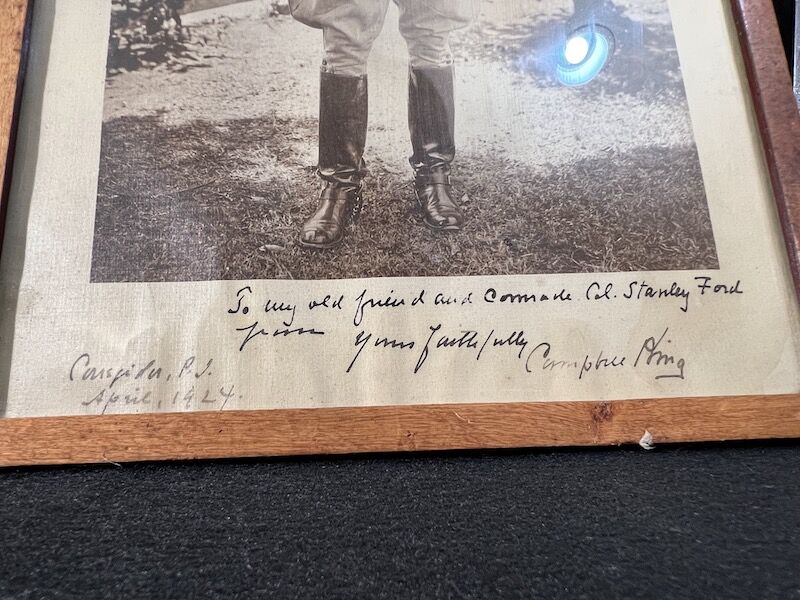 To my old friend and Comrade Col. Stanley Ford
from Yours faithfully Campbell King
Corregidor, P.I.
April, 1924.